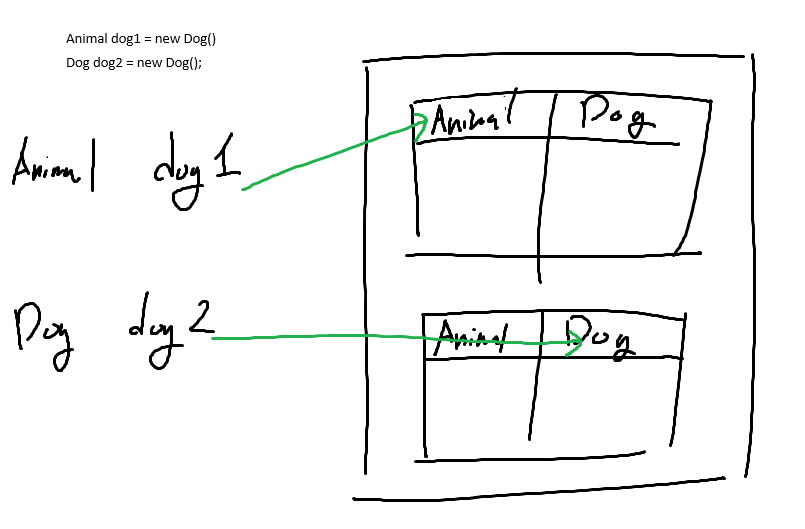 Animal dog1 = new Dog()
Dog dog2 = new Dog();
Animal Dog
Animal dog 1
Dog dog 2
Animal Dog